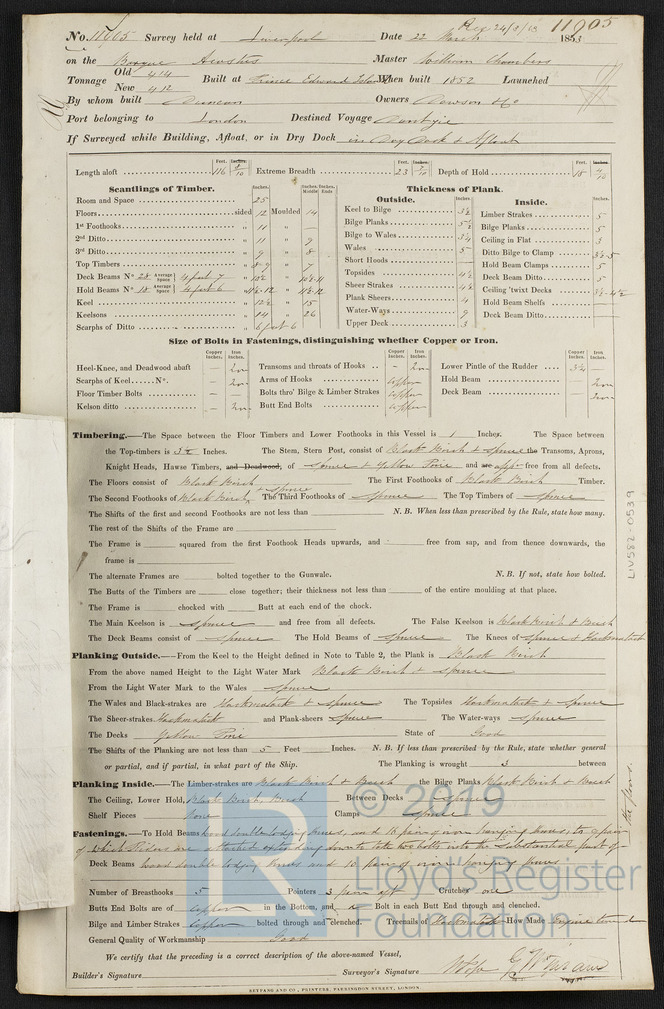 No. 11605 Survey held at Liverpool Date 22 March 1853
Rec 24/3/53 11905
on the Barque Master William Chambers
Tonnage Old 414 New 412 Built at Prince Edward Island When built 1852 Launched
By whom built Duncan Owners Dawson & Co
Port belonging to London Destined Voyage
If Surveyed while Building, Afloat, or in Dry Dock in Dry Dock & Afloat
Feet. Inches. Feet. Feet. Inches.
Length aloft 116 Extreme Breadth 23 Depth of Hold 18
Scantlings of Timber.
Inches. Inches. Middle Inches. Ends
Room and Space 25
Floors sided 12 Moulded 14
1st Foothooks „ 11 „ —
2nd Ditto „ 11 „ 9
3rd Ditto „ 9 „ 8
Top Timbers „ 8 „ 7
Deck Beams No. 28 Average Space 4 feet 7 „ 10½ „
Hold Beams No. 18 Average Space 4 feet 6 „ 11½·12 „ 11½·12
Keel „ 12½ „ 15
Keelsons „ 14 „ 26
Scarphs of Ditto „ 6 feet 6
Thickness of Plank.
Outside. Inches.
Keel to Bilge 3½
Bilge Planks
Bilge to Wales
Wales 5
Short Hoods —
Topsides
Sheer Strakes
Plank Sheers 4
Water-Ways 9
Upper Deck 3
Inside. Inches.
Limber Strakes 5
Bilge Planks 5
Ceiling in Flat 3
Ditto Bilge to Clamp 3½·5
Hold Beam Clamps 5
Deck Beam Ditto 5
Ceiling 'twixt Decks
Hold Beam Shelfs —
Deck Beam Ditto —
Size of Bolts in Fastenings, distinguishing whether Copper or Iron.
Copper Inches. Iron Inches. Copper Inches. Iron Inches. Copper Inches. Iron Inches.
Heel-Knee, and Deadwood abaft — Iron
Scarphs of Keel No. —
Floor Timber Bolts —
Kelson ditto — Iron
Transoms and throats of Hooks — Iron
Arms of Hooks Copper
Bolts thro' Bilge & Limber Strakes Copper
Butt End Bolts Copper
Lower Pintle of the Rudder 3¼ —
Hold Beam — Iron
Deck Beam — Iron
Timbering.—The Space between the Floor Timbers and Lower Foothooks in this Vessel is 1 Inches. The Space between
the Top-timbers is 3½ Inches. The Stem, Stern Post, consist of Black Birch & Spruce the Transoms, Aprons,
Knight Heads, Hawse Timbers, and Deadwood, of Spruce & Yellow Pine and are appr free from all defects.
The Floors consist of Black Birch The First Foothooks of Black Birch Timber.
The Second Foothooks of Black Birch, & Spruce The Third Foothooks of Spruce The Top Timbers of Spruce
The Shifts of the first and second Foothooks are not less than N. B. When less than prescribed by the Rule, state how many.
The rest of the Shifts of the Frame are
The Frame is squared from the first Foothook Heads upwards, and free from sap, and from thence downwards, the
frame is
The alternate Frames are bolted together to the Gunwale. N. B. If not, state how bolted.
The Butts of the Timbers are close together; their thickness not less than of the entire moulding at that place.
The Frame is chocked with Butt at each end of the chock.
The Main Keelson is Spruce and free from all defects. The False Keelson is Black Birch & Beech
The Deck Beams consist of Spruce The Hold Beams of Spruce The Knees of Spruce & Hackmatack
Planking Outside.—From the Keel to the Height defined in Note to Table 2, the Plank is Black Birch
From the above named Height to the Light Water Mark Black Birch & Spruce
From the Light Water Mark to the Wales Spruce
The Wales and Black-strakes are Hackmatack & Spruce The Topsides Hackmatack & Spruce
The Sheer-strakes Hackmatack and Plank-sheers Spruce The Water-ways Spruce
The Decks Yellow Pine State of Good
The Shifts of the Planking are not less than 5 Feet Inches. N. B. If less than prescribed by the Rule, state whether general
or partial, and if partial, in what part of the Ship. The Planking is wrought 3 between
Planking Inside.—The Limber-strakes are Black Birch & Beech the Bilge Planks Black Birch & Beech
The Ceiling, Lower Hold, Black Birch, Beech Between Decks Spruce
Shelf Pieces None Clamps Spruce
Fastenings.—To Hold Beams wood double lodging knees, and 10 pairs iron hanging knees, to a pair
of which Riders are attached extending down to take two bolts into the substantial part of the floors.
Deck Beams wood double lodging knees and 10 pairs of iron hanging knees
Number of Breasthooks 5 Pointers 3 pairs aft Crutches one
Butts End Bolts are of Copper in the Bottom, and a Bolt in each Butt End through and clenched.
Bilge and Limber Strakes Copper bolted through and clenched. Treenails of Hackmatack How Made Engine turned
General Quality of Workmanship Good
We certify that the preceding is a correct description of the above-named Vessel,
Builder's Signature Surveyor's Signature
REYNANG AND CO., PRINTERS, FARRINGDON STREET, LONDON.
LIV582-0539
© 2019
Lloyd's Register
Foundation